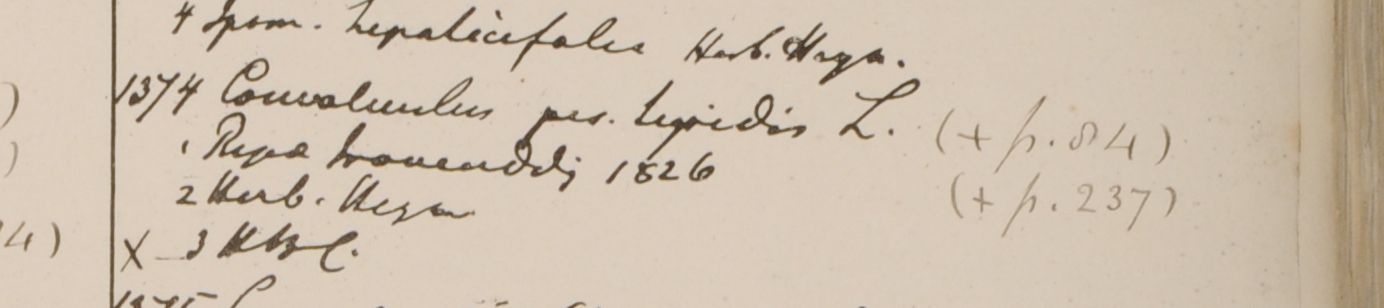 4 Ipom. hepaticifolia Herb. Heyn.
1374 Convolvulus pes. tigridis L. (+ p. 84)
1 Ripa Irawaddi 1826
(+ p. 237)
2 Herb. Heyn
X 3 HBC.
1375 C
4)